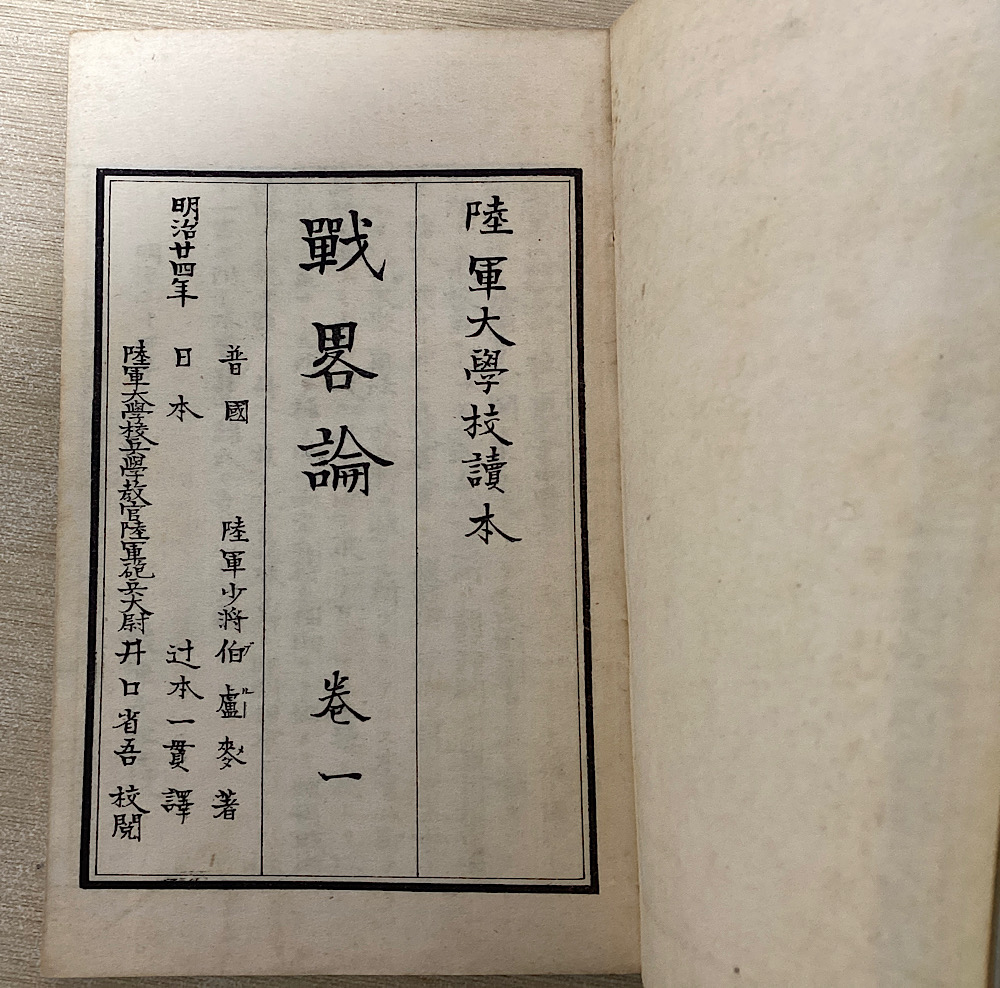 陸軍大學校讀本
戰畧論 卷一
普國 陸軍少將伯盧麥著
ブルーメ
明治廿四年 日本 辻本一貫譯
陸軍大學校兵學教官陸軍砲兵大尉井口省吾校閲